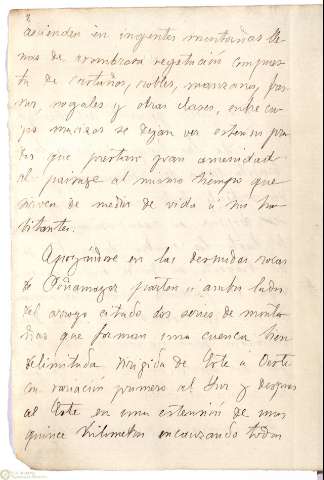 ascienden en ingentes montañas lle-
nas de asombrosa vegetación compues-
ta de castaños, robles, manzanos, fres-
nos, nogales y otras clases, entre cu-
yos macizos se dejan ver extensos pra-
dos que prestan gran amenidad
al paisaje al mismo tiempo que
sirven de medio de vida a sus ha-
bitantes.
Apoyándose en las desnudas rocas
de Peñamayor parten a ambos lados
del arroyo citado dos series de monta-
ñas que forman una cuenca bien
delimitada, dirigida de Este a Oeste
con variación primero al Sur y después
al Este en una extensión de unos
quince kilometros encauzando todas